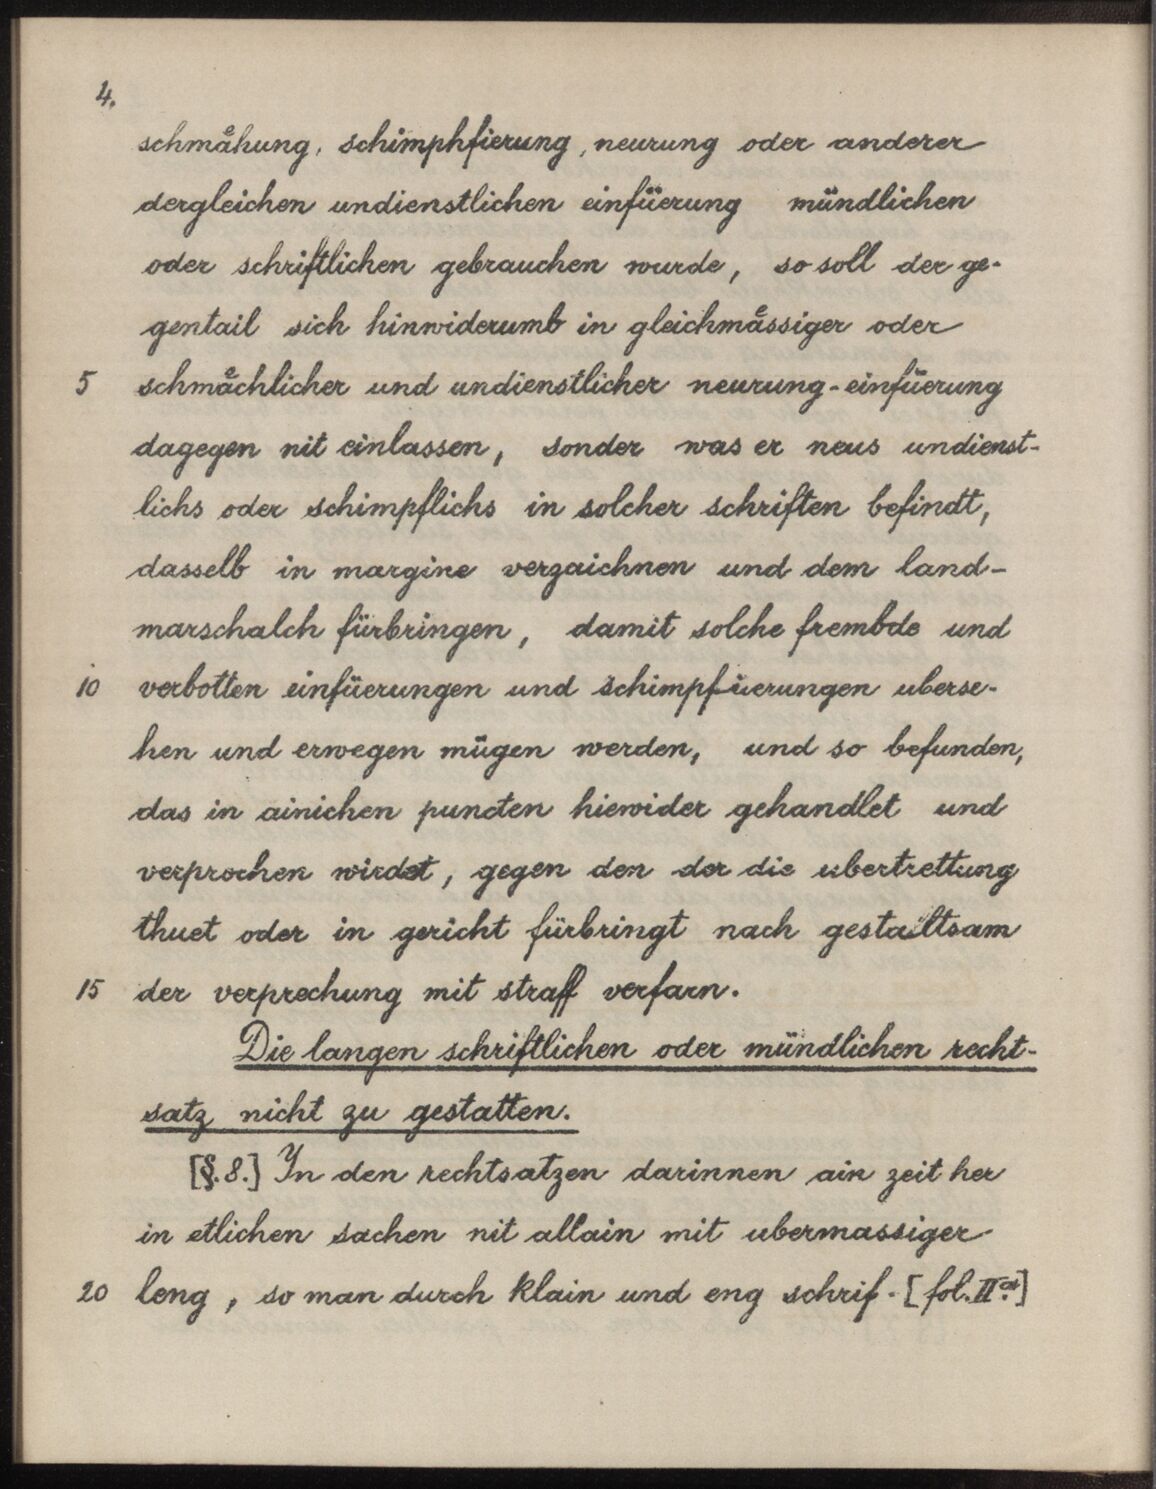 4.
schmaͤhung, schimphfierung, neurung oder anderer
dergleichen undienstlichen einfüerung mündlichen
oder schriftlichen gebrauchen wurde, so soll der ge-
gentail sich hinwiderumb in gleichmaͤssiger oder
5 schmaͤchlicher und undienstlicher neurung-einfüerung
dagegen nit einlassen, sonder was er neus undienst-
lichs oder schimpflichs in solcher schriften befindt,
dasselb in margine verzaichnen und dem land-
marschalch fürbringen, damit solche frembde und
10 verbotten einfüerungen und schimpfüerungen uberse-
hen und erwegen mügen werden, und so befunden,
das in ainichen puncten hiewider gehandlet und
verprochen wirdet, gegen den der die ubertrettung
thuet oder in gericht fürbringt nach gestaltsam
15 der verprechung mit straff verfarn.
Die langen schriftlichen oder mündlichen recht-
satz nicht zu gestatten.
[§.8.] In den rechtsatzen darinnen ain zeit her
in etlichen sachen nit allain mit ubermassiger
20 leng, so man durch klain und eng schrif- [fol. II